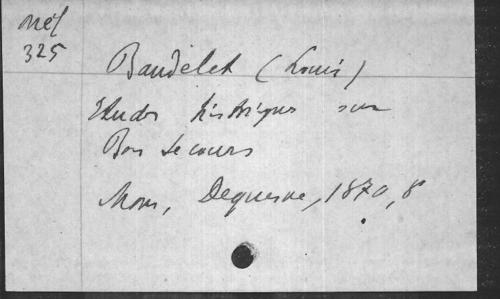 Mél
325
Baudelet (Louis)
Etudes historiques sur
Bon Secours
Mons, Dequesne, 1870, 8°